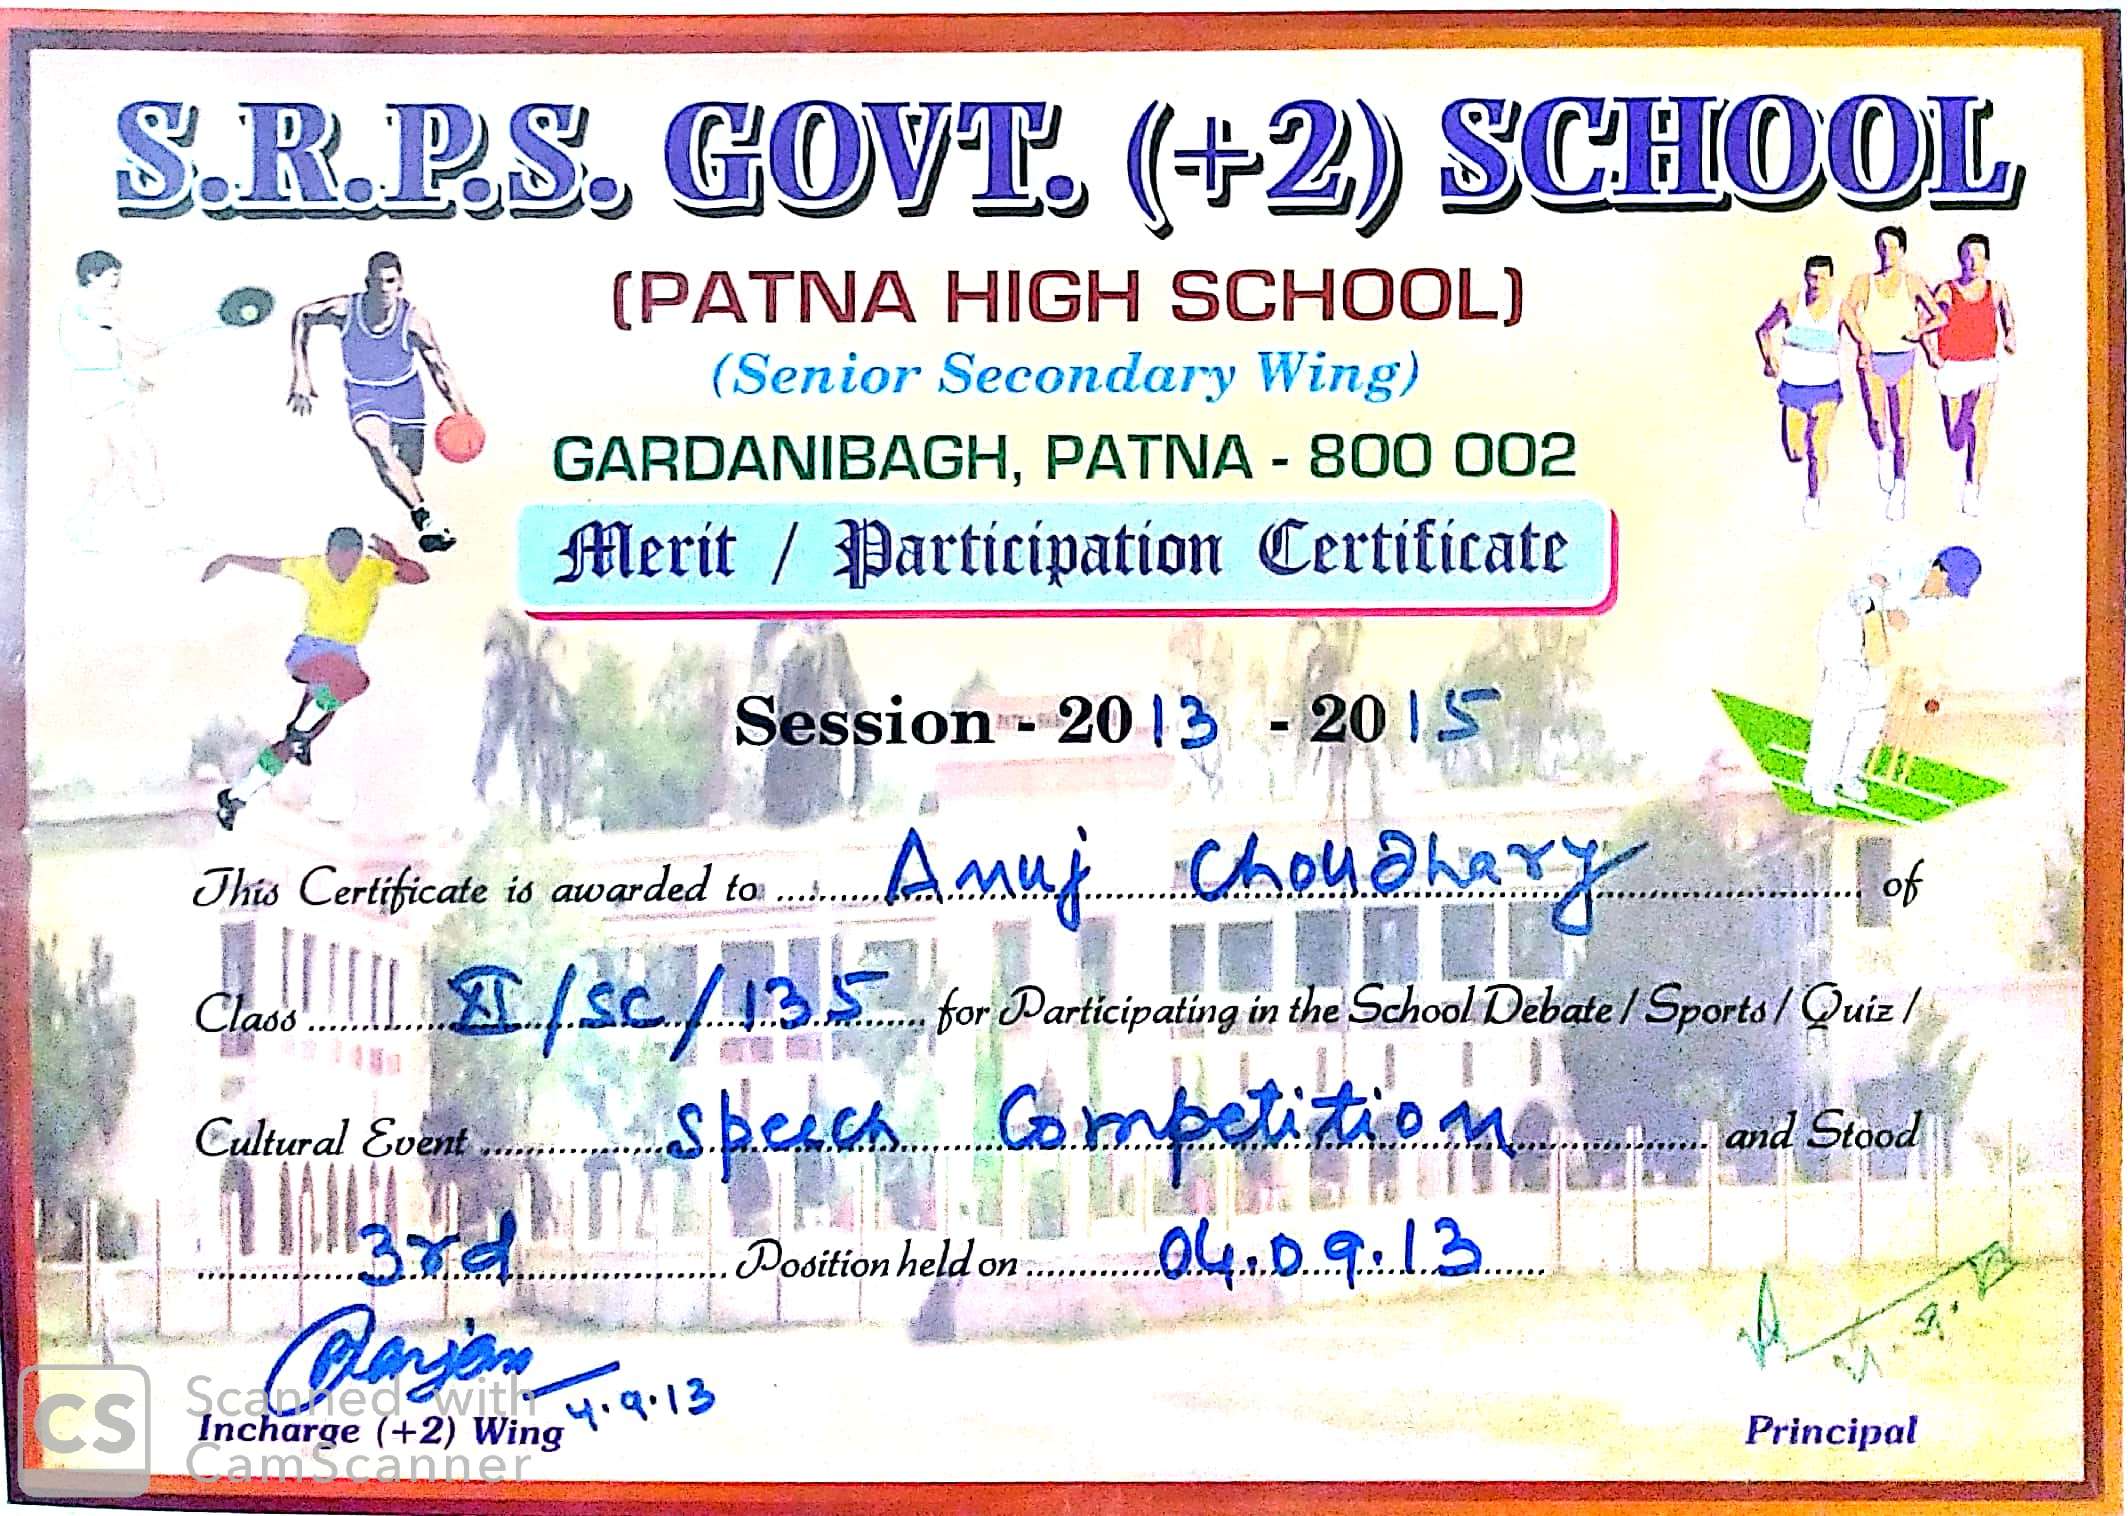 S.R.P.S. GOVT. (+2) SCHOOL
(PATNA HIGH SCHOOL)
(Senior Secondary Wing)
GARDANIBAGH, PATNA - 800 002
Merit / Participation Certificate
Session - 2013 - 2015
This Certificate is awarded to Anuj Choudhary of
Class XI/SC/135 for Participating in the School Debate / Sports / Quiz /
Cultural Event Speech Competition and Stood
3rd Position held on 04.09.13
4.9.13
Incharge (+2) Wing
Principal
CS Scanned with
CamScanner